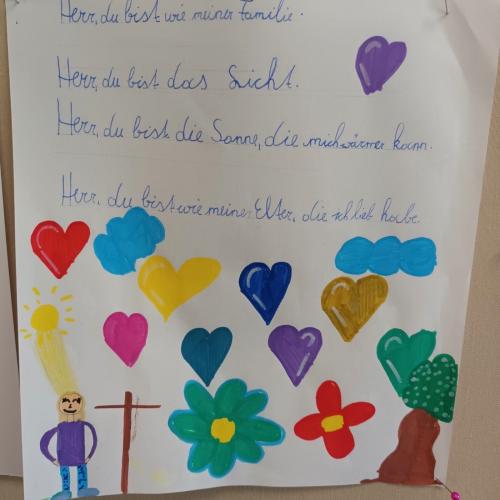 Herr, du bist wie meiner Familie.
Herr, du bist das Licht.
Herr, du bist die Sonne, die mich wärmer kann.
Herr, du bist wie meiner Elter, die ich lieb habe.